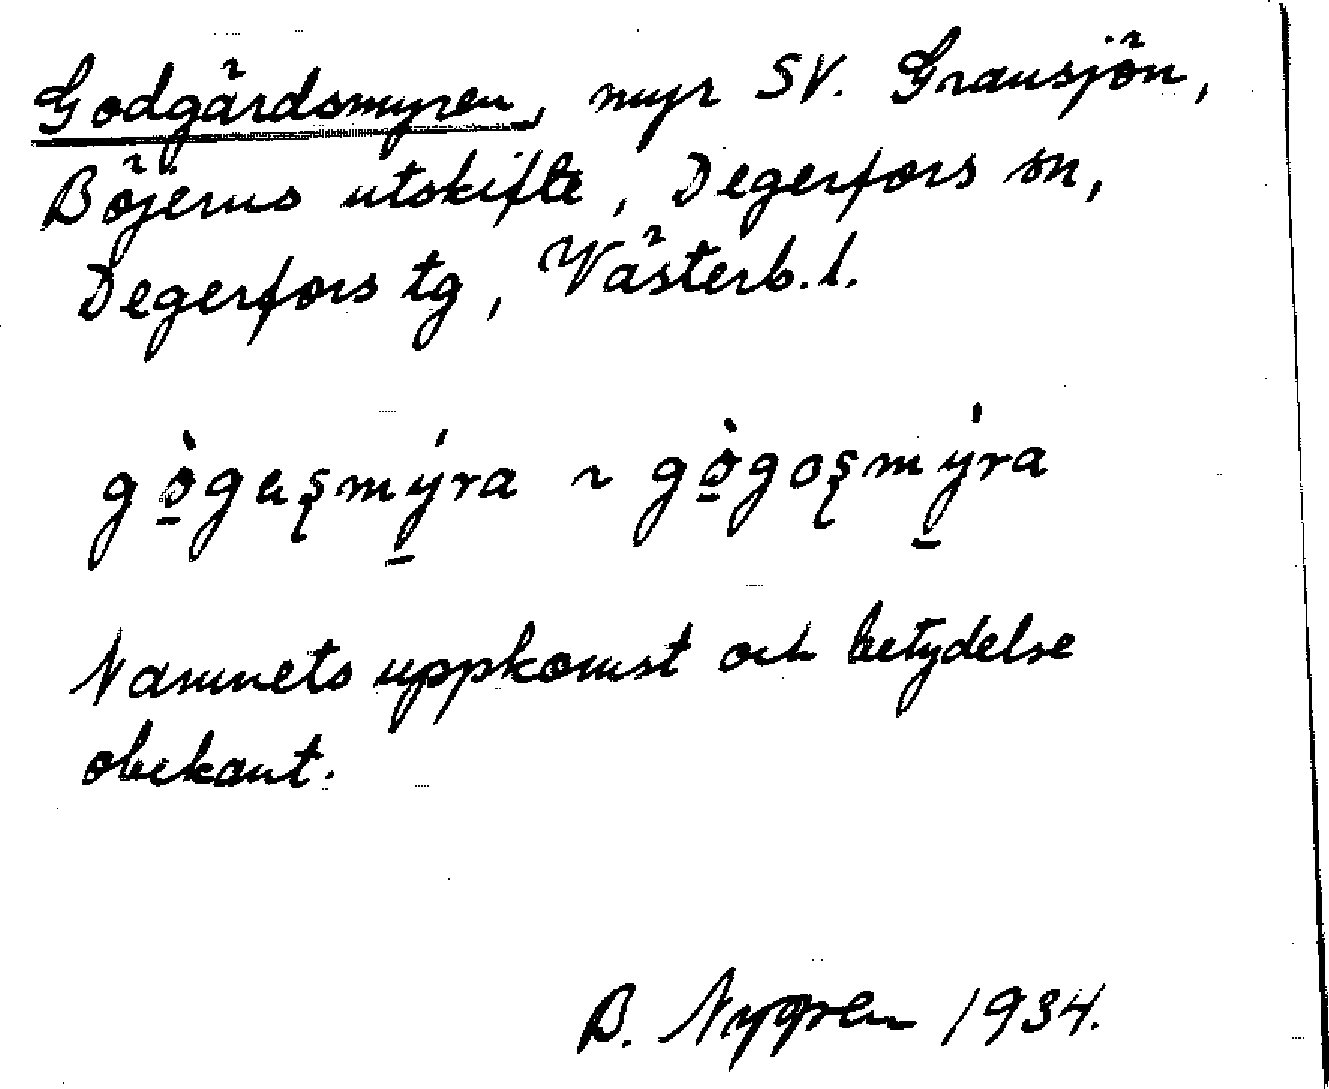 Godgärdsmyren, myr SV. Gransjön,
Böjerns utskifte, Degerfors sn,
Degerfors tg, Västerb. l.
gò̱gaʂmý̱ra ~ gò̱goʂmý̱ra
Namnets uppkomst och betydelse
obekant.
B. Nygren 1934.